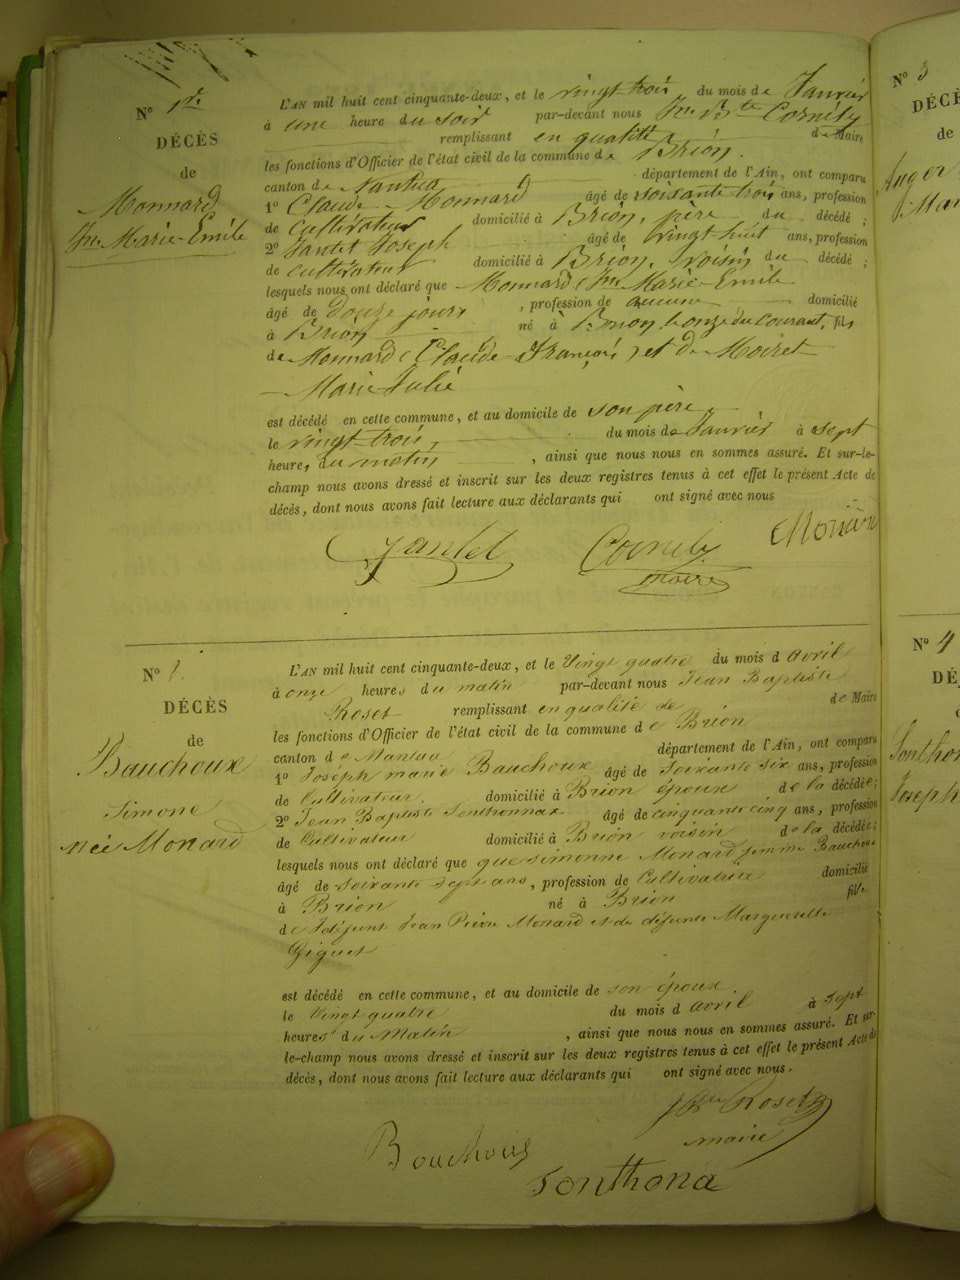 N° 1er
DÉCÈS
de
Monnard
Jn Marie-Emile
L'AN mil huit cent cinquante-deux, et le vingt trois du mois de Janvier
à une heure du soir par-devant nous Jn Bte Cornély
remplissant en qualité de Maire
les fonctions d'Officier de l'état civil de la commune de Brion.
canton de Nantua département de l'Ain, ont comparu
1° Claude Monnard âgé de soixante trois ans, profession
de cultivateur domicilié à Brion, père du décédé;
2° Jantet Joseph âgé de vingt huit ans, profession
de cultivateur domicilié à Brion, voisin du décédé;
lesquels nous ont déclaré que Monnard Jn Marie-Emile
âgé de douze jours, profession de aucune domicilié
à Brion né à Brion, le onze du courant, fils
de Monnard Claude-François, et de Moiret
Marie-Julie
est décédé en cette commune, et au domicile de son père,
le vingt-trois, du mois de Janvier à sept
heures du matin, ainsi que nous nous en sommes assuré. Et sur-le-
champ nous avons dressé et inscrit sur les deux registres tenus à cet effet le présent Acte de
décès, dont nous avons fait lecture aux déclarants qui ont signé avec nous
Jantet Cornély
maire
N°
DÉCÈS
de
Bauchoux
Simone
née Monard
L'AN mil huit cent cinquante-deux, et le Vingt quatre du mois d avril
à onze heures du matin par-devant nous Jean Baptiste
Roset remplissant en qualité de de Maire
les fonctions d'Officier de l'état civil de la commune de Brion
canton de Nantua département de l'Ain, ont comparu
1° Joseph marie Bauchoux âgé de soixante six ans, profession
de Cultivateur. domicilié à Brion époux de la décédée;
2° Jean Baptiste Sonthonnax âgé de cinquante cinq ans, profession
de Cultivateur domicilié à Brion voisin de la décédée;
lesquels nous ont déclaré que que simonne Monard femme Bauchoux
âgé de soixante sept ans, profession de Cultivatrice domicilié
à Brion né à Brion fille
de défunt Jean Pierre Monard et de défunte Marguerite
Giguet
est décédé en cette commune, et au domicile de son époux.
le Vingt quatre du mois d avril à sept
heures du Matin, ainsi que nous nous en sommes assuré. Et sur-
le-champ nous avons dressé et inscrit sur les deux registres tenus à cet effet le présent Acte de
décès, dont nous avons fait lecture aux déclarants qui ont signé avec nous.
Roset
maire
Bouchoux
Sonthona
N° 3
DÉCÈ
de
N° 4
DÉ
Sonthon
Joseph